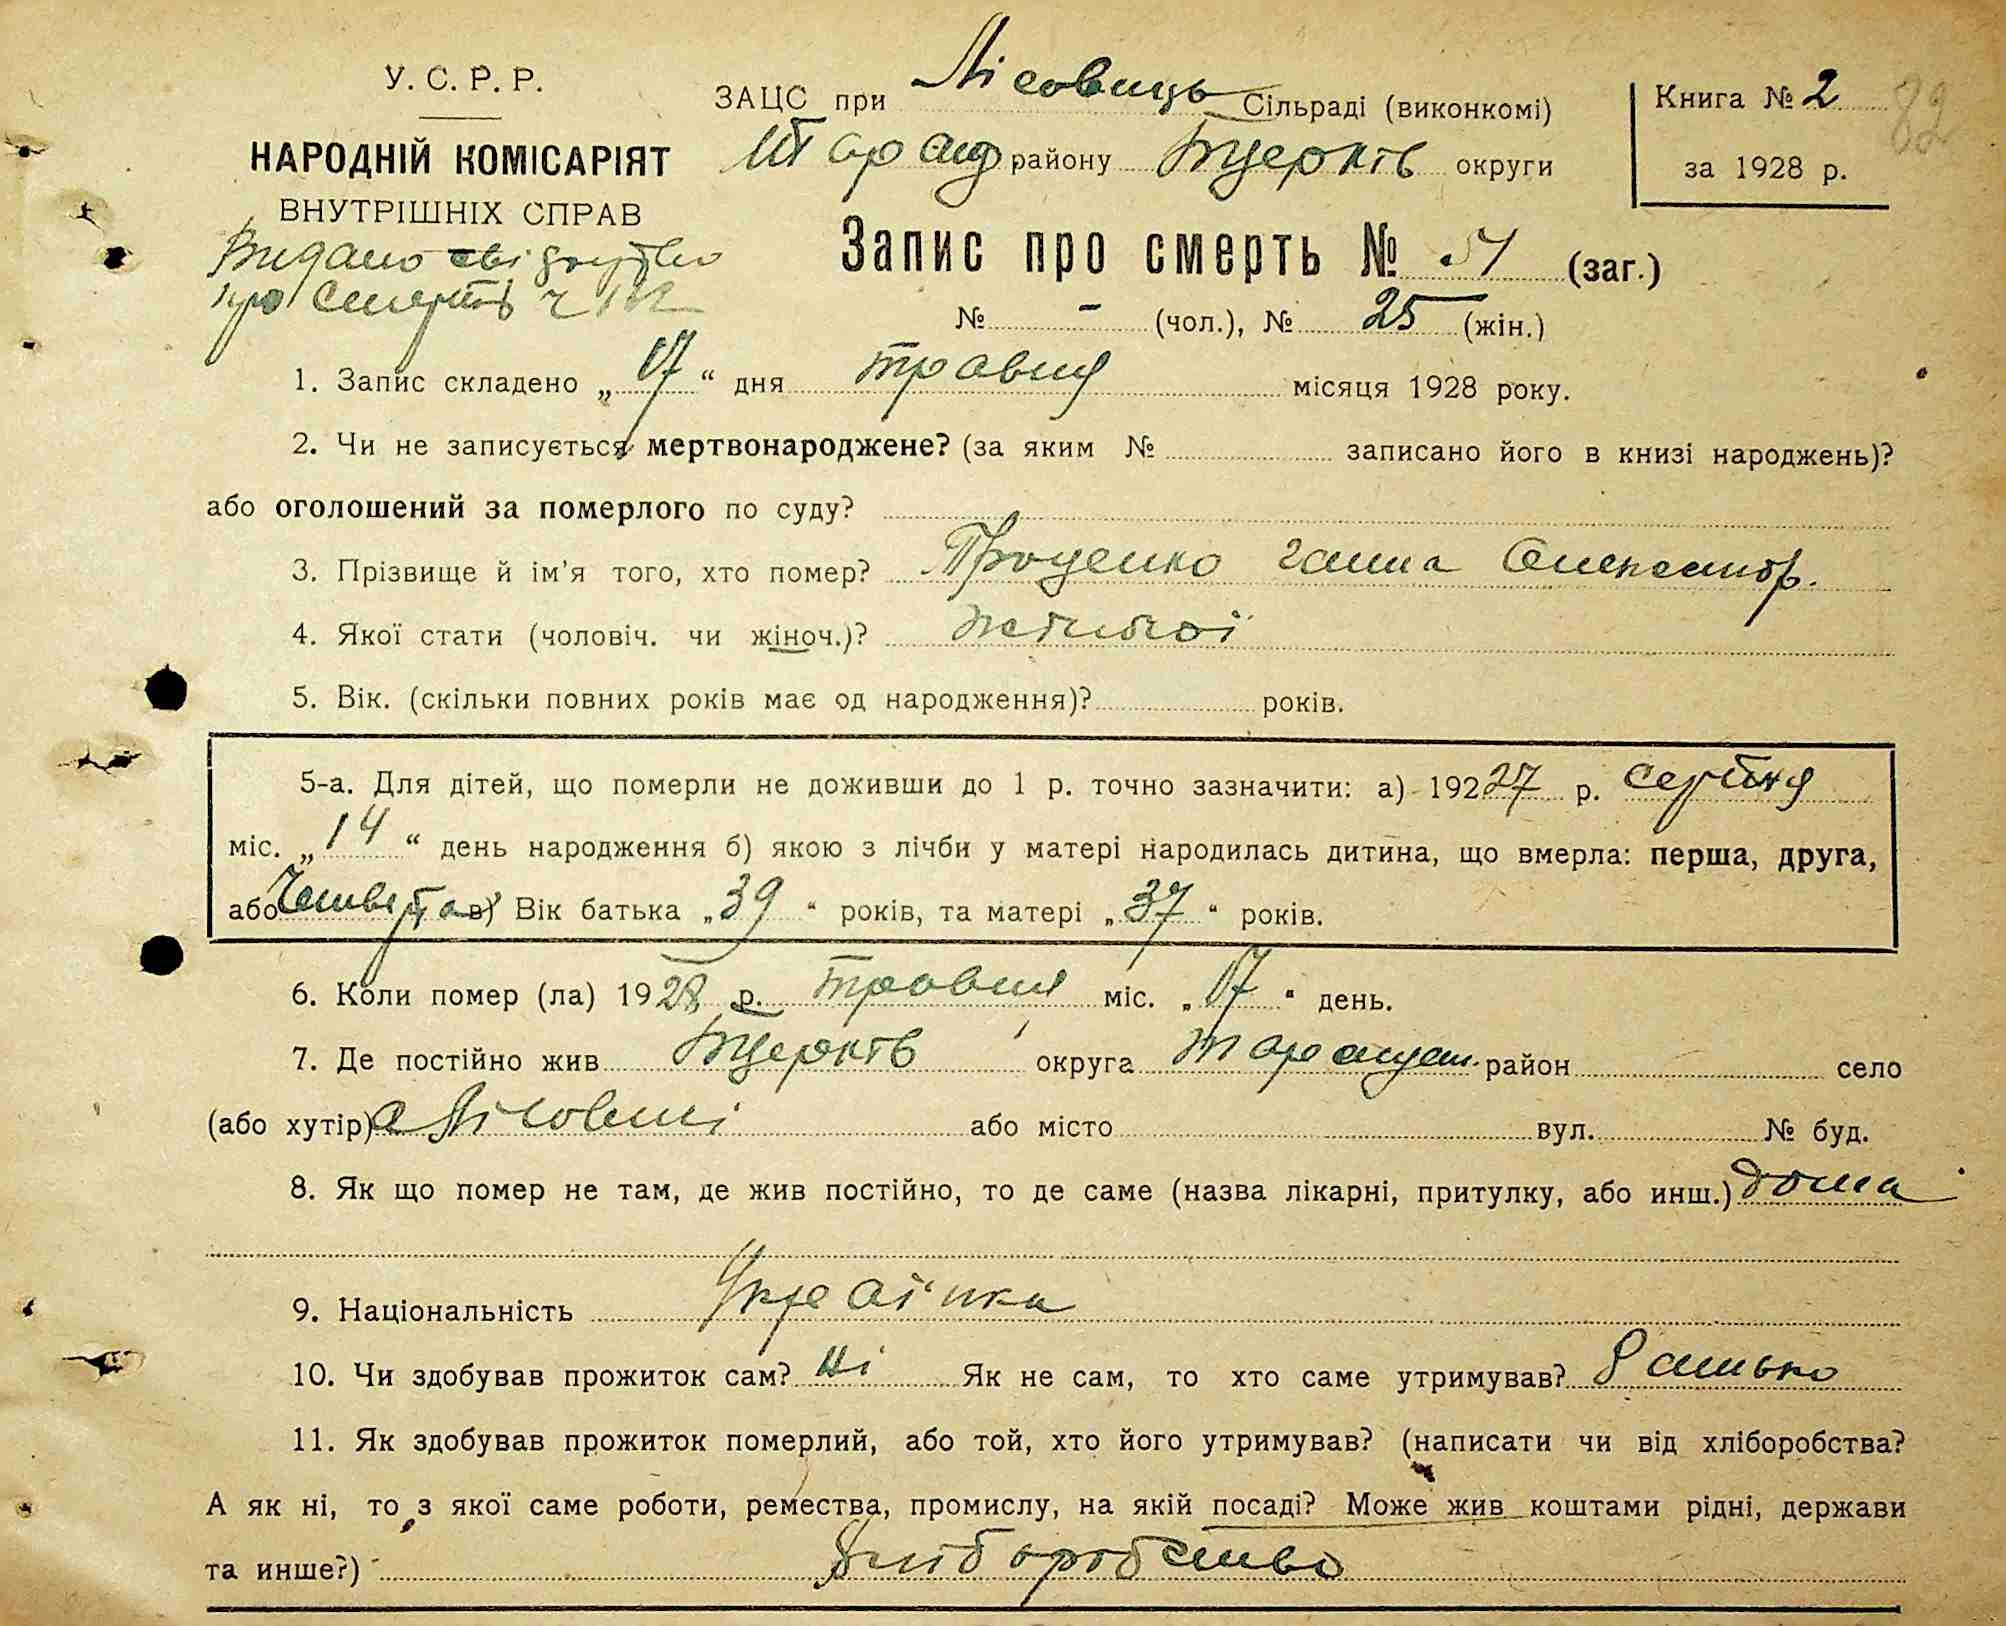 У. С. Р. Р.
НАРОДНІЙ КОМІСАРІЯТ
ВНУТРІШНІХ СПРАВ
Видано свідоцтво
про смерть ч
ЗАЦС при Лісовиць Сільраді (виконкомі)
Таращ району Бцерків округи
Книга № 2
за 1928 р.
82
Запис про смерть № 51 (заг.)
№ - (чол.), № 25 (жін.)
1. Запис складено „ 17 “ дня травня місяця 1928 року.
2. Чи не записується мертвонароджене? (за яким № записано його в книзі народжень)?
або оголошений за померлого по суду?
3. Прізвище й ім'я того, хто помер? Проценко Ганна Олександр.
4. Якої стати (чоловіч. чи жіноч.)? жіночої
5. Вік. (скільки повних років має од народження)? років.
5-а. Для дітей, що померли не доживши до 1 р. точно зазначити: а) 192 27 р. серпня
міс. „ 14 “ день народження б) якою з лічби у матері народилась дитина, що вмерла: перша, друга,
або четверта в) Вік батька „ 39 “ років, та матері „ 37 “ років.
6. Коли помер (ла) 19 28 р. травня міс. „ 17 “ день.
7. Де постійно жив Бцерків округа Таращан. район село
(або хутір) с Лісовичі або місто вул. № буд.
8. Як що помер не там, де жив постійно, то де саме (назва лікарні, притулку, або инш.) дома
9. Національність Українка
10. Чи здобував прожиток сам? Ні Як не сам, то хто саме утримував? батько
11. Як здобував прожиток померлий, або той, хто його утримував? (написати чи від хліборобства?
А як ні, то з якої саме роботи, ремества, промислу, на якій посаді? Може жив коштами рідні, держави
та инше?) хліборобство